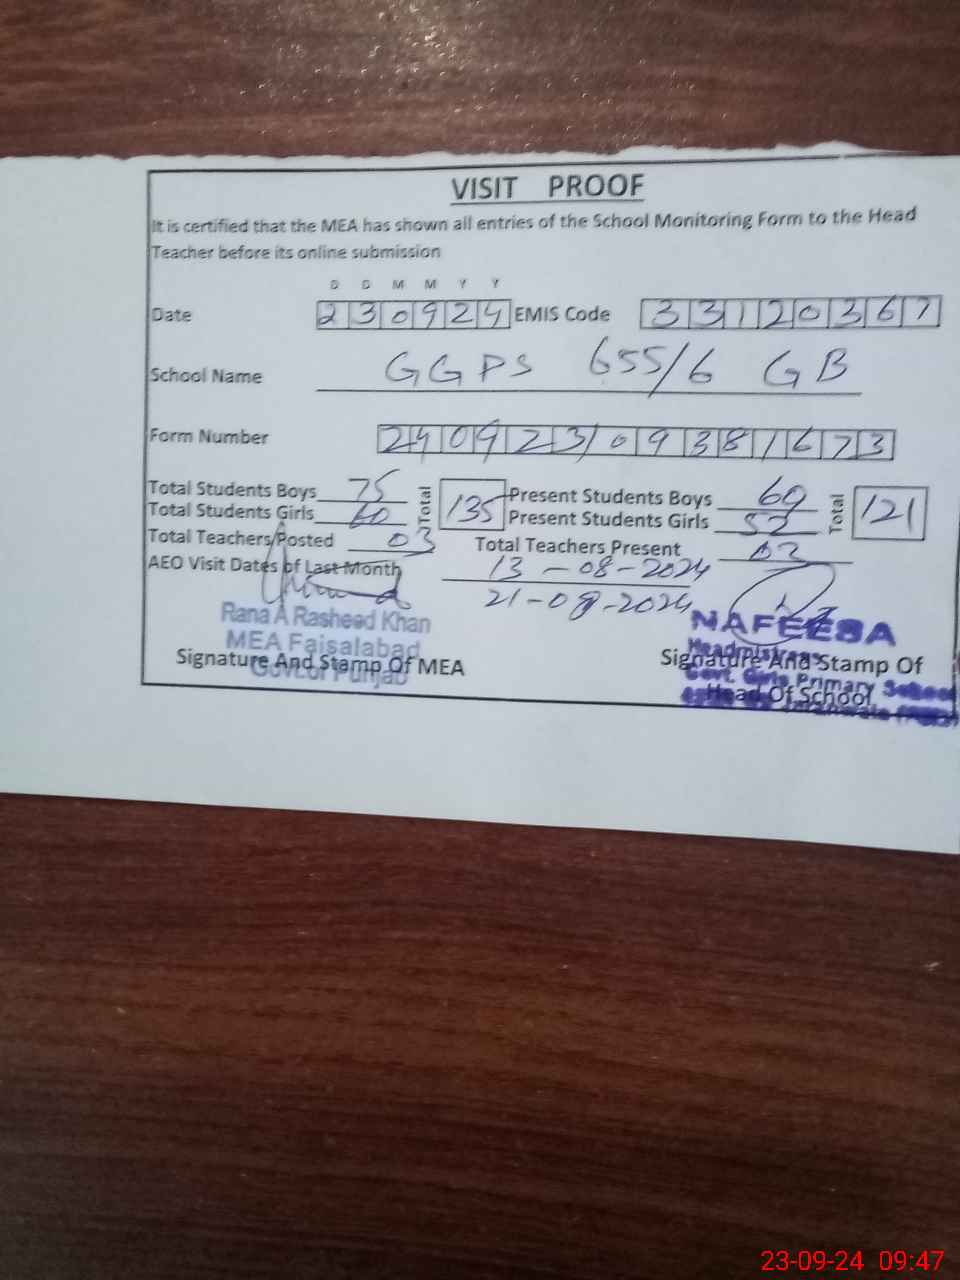 VISIT PROOF
It is certified that the MEA has shown all entries of the School Monitoring Form to the Head
Teacher before its online submission
D D M M Y Y
Date 230924 EMIS Code 33120367
School Name GGPS 655/6 GB
Form Number 24092310938 1673
Total Students Boys 75 Total 135 Present Students Boys 69 Total 121
Total Students Girls 60 Present Students Girls 52
Total Teachers Posted 03 Total Teachers Present 03
AEO Visit Dates of Last Month 13-08-2024
21-08-2024
Rana A Rasheed Khan
MEA Faisalabad
Govt.of Punjab
Signature And Stamp Of MEA
NAFEESA
Headmistress
Govt. Girls Primary School
Signature And Stamp Of
Head Of School
23-09-24 09:47